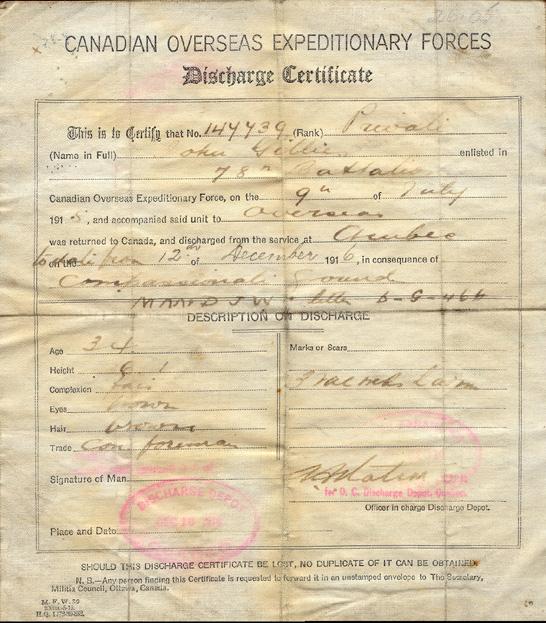 CANADIAN OVERSEAS EXPEDITIONARY FORCES
Discharge Certificate
This is to Certify that No. 147739 (Rank) Private
(Name in Full) John Gillie enlisted in
78th Battalion
Canadian Overseas Expeditionary Force, on the 9th of July
1915, and accompanied said unit to Overseas
was returned to Canada, and discharged from the service at Quebec
to date from on the 12th of December 1916, in consequence of
Compassionate ground
DESCRIPTION ON DISCHARGE
Age 34
Marks or Scars
Height 6.1
Complexion fair
3 vac mks L arm
Eyes brown
Hair brown
Trade Con. foreman
Signature of Man
for O. C. Discharge Depot, Quebec.
Officer in charge Discharge Depot.
DISCHARGE DEPOT
Place and Date
SHOULD THIS DISCHARGE CERTIFICATE BE LOST, NO DUPLICATE OF IT CAN BE OBTAINED.
N. B.—Any person finding this Certificate is requested to forward it in an unstamped envelope to The Secretary,
Militia Council, Ottawa, Canada.
M. F. W. 39